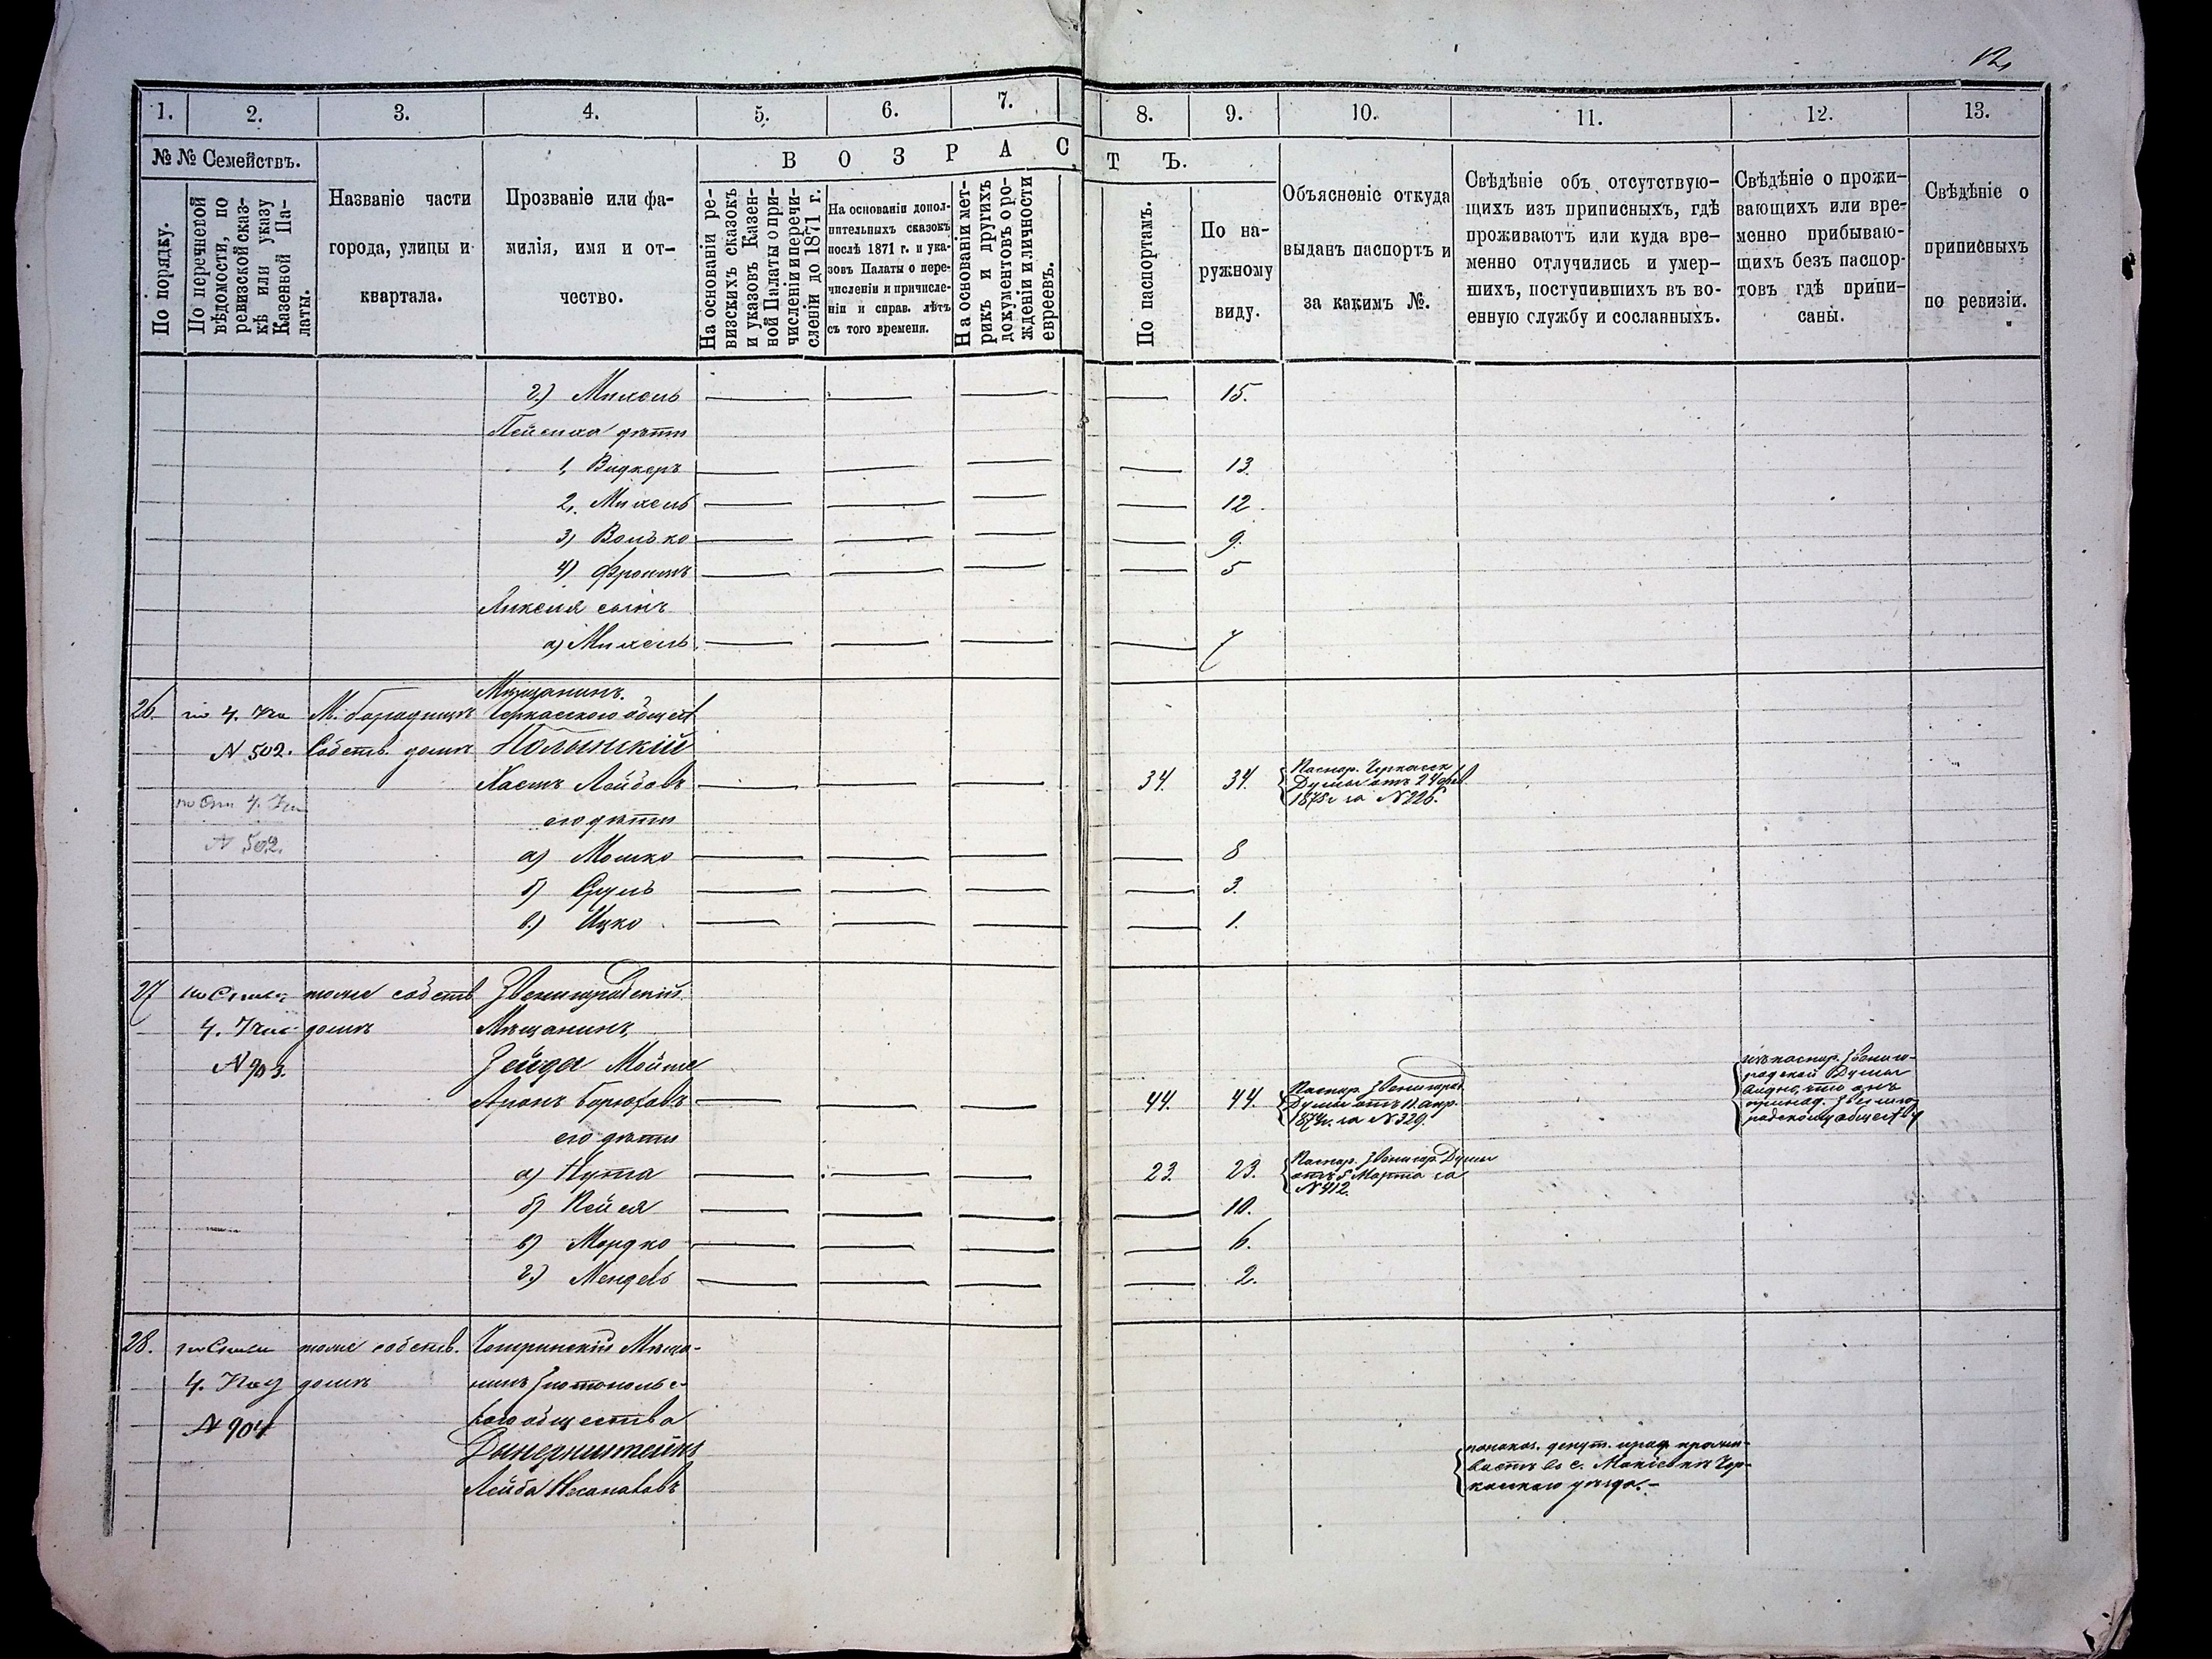 12
1. 2. 3. 4. 5. 6. 7. 8. 9. 10. 11. 12. 13.
№ № Семействъ.
В О З Р А С Т Ъ.
По порядку.
По перечневой
вѣдомости, по
ревизской сказ-
кѣ или указу
Казенной Па-
латы.
Названіе части
города, улицы и
квартала.
Прозваніе или фа-
милія, имя и от-
чество.
На основаніи ре-
визскихъ сказокъ
и указовъ Казен-
ной Палаты о при-
численіи и перечи-
сленіи до 1871 г.
На основаніи допол-
нительныхъ сказокъ
послѣ 1871 г. и ука-
зовъ Палаты о пере-
численіи и причисле-
ніи и справ. лѣтъ
съ того времени.
На основаніи мет-
рикъ и другихъ
документовъ о ро-
жденіи и личности
евреевъ.
По паспортамъ.
По на-
ружному
виду.
Объясненіе откуда
выданъ паспортъ и
за какимъ №.
Свѣдѣніе объ отсутствую-
щихъ изъ приписныхъ, гдѣ
проживаютъ или куда вре-
менно отлучились и умер-
шихъ, поступившихъ въ во-
енную службу и сосланныхъ.
Свѣдѣніе о прожи-
вающихъ или вре-
менно прибываю-
щихъ безъ паспор-
товъ гдѣ припи-
саны.
Свѣдѣніе о
приписныхъ
по ревизіи.
2.) Михель 15.
дѣти
1, 13.
2, Михель 12.
3) Волько 9.
4) Фроимъ 5
сынъ
а) Михель 7
Мѣщанинъ
26. 4. М. Городищѣ Черкасского общест
N 502. Собств. домѣ
Лейбовъ 34. 34. Паспор. Черкасск
Думы отъ 24 фев
1875 г за N 226.
4.
N 502.
его дѣти
а) Мошко 8
б) Сруль 3.
в.) Ицко 1.
27 тоже собств Звенигородскій
4. домѣ Мѣщанинъ,
N 903. Зейда
Аронъ Борюховъ 44. 44. Паспор. Звенигород.
Думы отъ 11 апр.
1874 г. за N 329.
изъ паспор. Звениго-
родской Думы
видно, что онъ
принад. Звениго
родскому обществу
его дѣти
а) Нута 23. 23. Паспор. Звенигор. Думы
отъ 5 Марта за
N 412.
б) Пейся 10.
в) Мордко 6.
г.) Мендель 2.
28. тоже собств. Чигиринскій Мѣща-
4. домѣ нинъ Златопольс-
N 904 каго общества
Лейба
показ. депут. прож
ваетъ въ с. Макіевкѣ Чер-
касскаго уѣзда.-